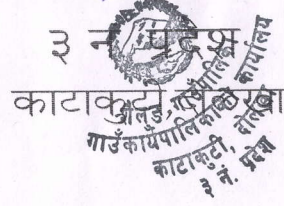 ३ नं प्रदेश
काटाकुटी, दोलखा
गाउँकार्यपालिकाको कार्यालय
काटाकुटी, दोलखा
३ नं. प्रदेश